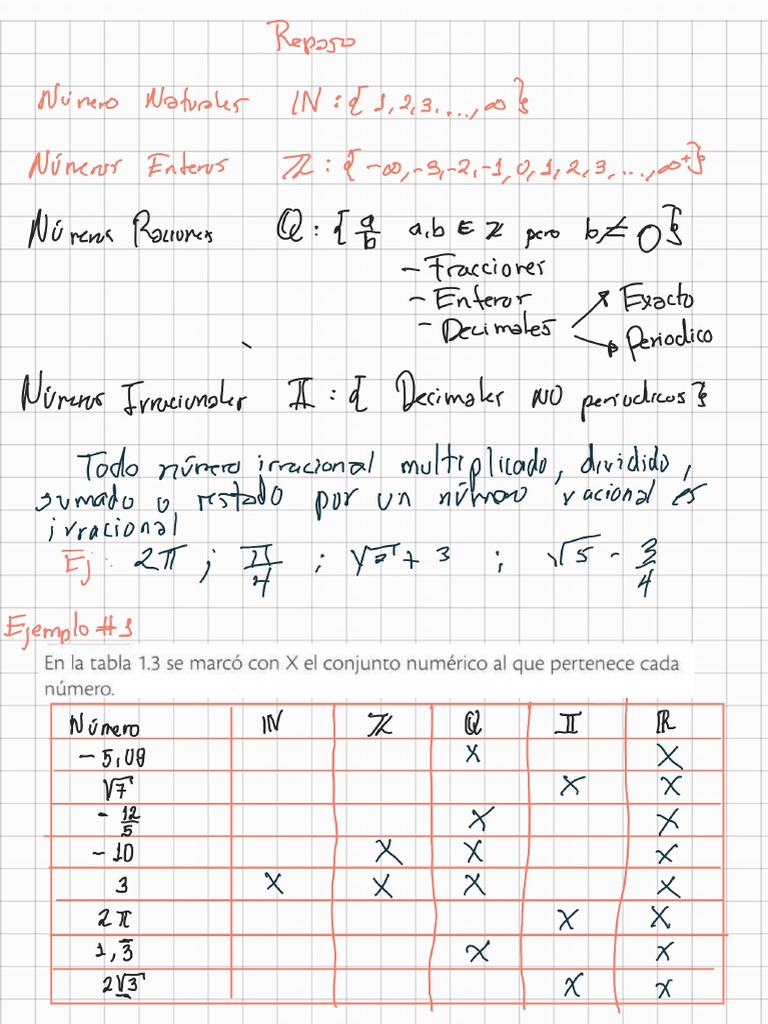 Repaso
Número Naturales IN : { 1, 2, 3, ..., ∞ }
Números Enteros ℤ : { -∞, -3, -2, -1, 0, 1, 2, 3, ..., ∞⁺ }
Números Raciones ℚ : { a/b a,b ∈ ℤ pero b ≠ 0 }
- Fracciones
- Enteros
- Decimales → Exacto
→ Periodico
Números Irracionales 𝕀 : { Decimales NO periodicos }
Todo número irracional multiplicado, dividido,
sumado o restado por un número racional es
irracional
Ej: 2π ; π/4 ; √2 + 3 ; √5 - 3/4
Ejemplo #1
En la tabla 1.3 se marcó con X el conjunto numérico al que pertenece cada
número.
Número IN ℤ ℚ 𝕀 ℝ
-5,08 X X
√7 X X
-12/5 X X
-10 X X X
3 X X X X
2π X X
1,3̅ X X
2√3 X X